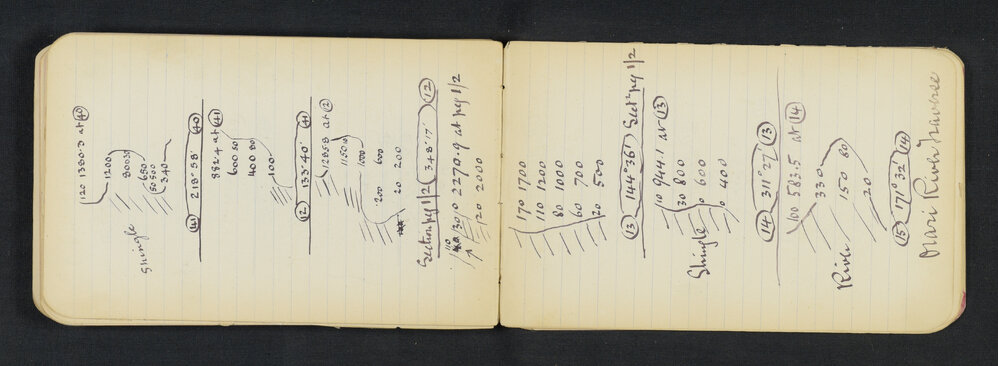 120 1380.0 at 40
1200
80030
Shingle 650
50 50
340
41 219°58' 40
882.4 at 41
600 50
400 80
100
12 133°40' 41
1285.8 at 12
1150 10
1000
200 600
20 200
Section pg 1/2 348°17' 12
110 30 0 2270.9 at peg 1/2
120 2000
170 1700
110 1200
80 1000
60 700
20 500
13 144°36' Sectn pg 1/2
10 944.1 at 13
30 800
Shingle 0 600
0 400
14 311°27' 13
100 583.5 at 14
330
River 150 80
20
15 171°32' 14
Orari River Traverse